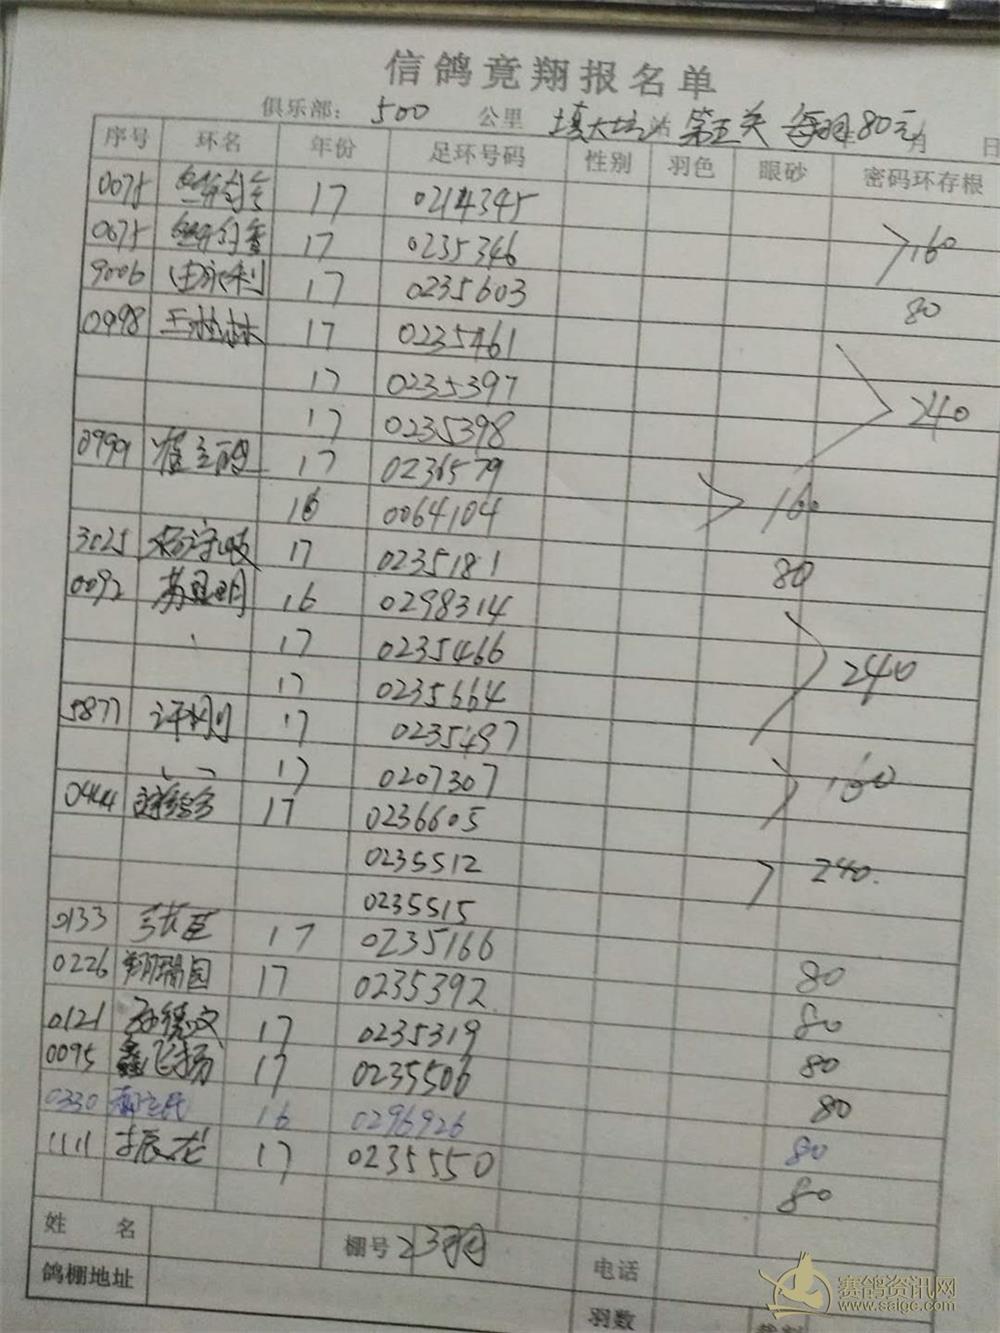 信鸽竞翔报名单
俱乐部: 500 公里 填大坑站 第五关 每羽80元 月 日
序号 环名 年份 足环号码 性别 羽色 眼砂 密码环存根
0075 17 0214345
0075 17 0235346 160
9006 17 0235603 80
0998 王桂林 17 0235461
17 0235397 240
17 0235398
0999 17 0236579
16 0064104 160
3025 17 0235181 80
0092 16 0298314
17 0235466 240
17 0235664
5877 许明 17 0235497
17 0207307 160
0444 17 0236605
0235512 240
0235515
0133 张臣 17 0235166 80
0226 翔瑞园 17 0235392 80
0121 孙德文 17 0235319 80
0095 鑫飞扬 17 0235506 80
0330 16 0296926 80
1111 振龙 17 0235550 80
姓 名 棚号 23羽 电话
鸽棚地址 羽数
赛鸽资讯网
www.saigc.com